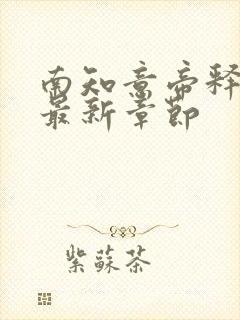 南知意帝释
最新章节
紫蘇茶